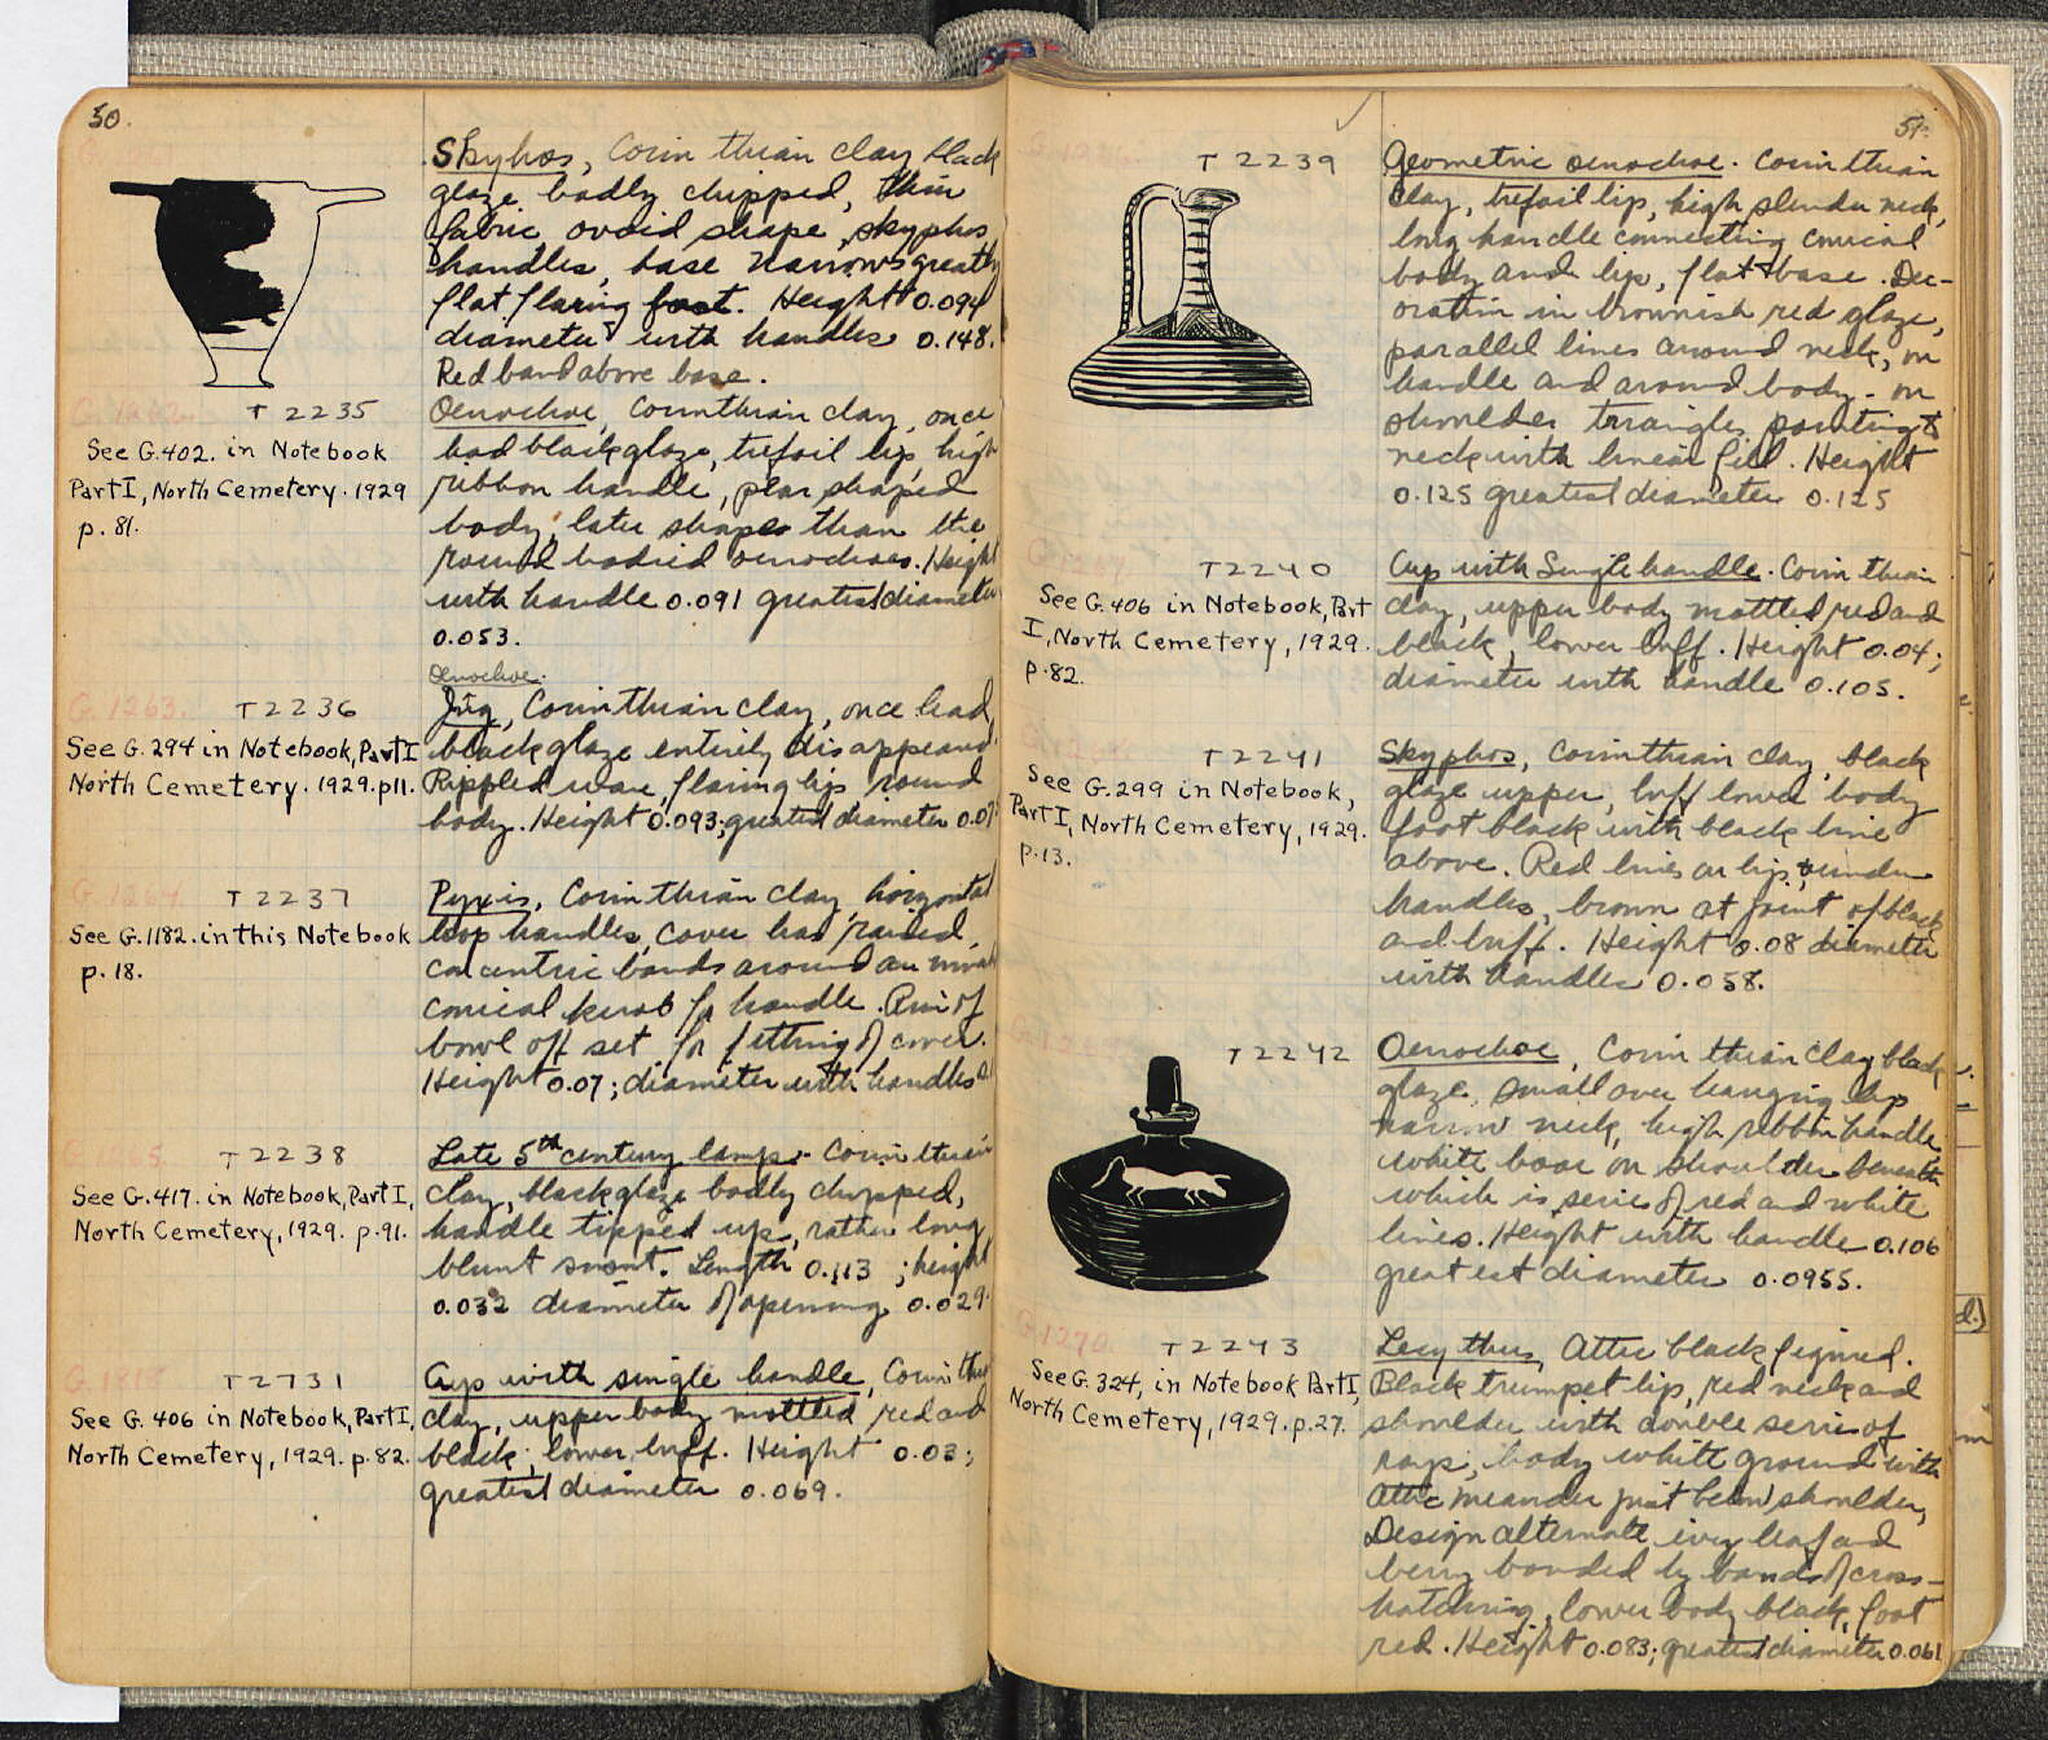 50.
Skyhos, Corinthian clay black
glaze badly chipped, thin
fabric ovoid shape, skyphos
handles, base narrows greatly
flat flaring foot. Height 0.094
diameter with handles 0.148.
Red band above base.
T 2235
See G.402. in Notebook
Part I, North Cemetery. 1929
p. 81.
Oenochoe, Corinthian clay, once
had black glaze, trefoil lip, high
ribbon handle, pear shaped
body, later shape than the
round bodied oenochoes. Height
with handle 0.091 greatest diameter
0.053.
G.1263. T 2236
See G. 294 in Notebook, Part I
North Cemetery. 1929. p11.
Oenochoe.
Jug, Corinthian clay, once had
black glaze entirely disappeared.
Rippled ware, flaring lip round
body. Height 0.093; greatest diameter 0.07
G.1264 T 2237
See G.1182. in this Notebook
p. 18.
Pyxis, Corinthian clay, horizontal
loop handles, cover has raised
concentric bands around an
conical knob for handle. Rim of
bowl off set for fitting of cover.
Height 0.07; diameter with handles
T 2238
See G.417. in Notebook, Part I,
North Cemetery, 1929. p.91.
Late 5th century lamp. Corinthian
clay, black glaze badly chipped,
handle tipped up, rather long
blunt snout. Length 0.113; height
0.032 diameter of opening 0.029.
G.1818 T 2731
See G. 406 in Notebook, Part I,
North Cemetery, 1929. p. 82.
Cup with single handle, Corinthian
clay, upper body mottled red and
black; lower buff. Height 0.03;
greatest diameter 0.069.
51.
T 2239
Geometric oenochoe. Corinthian
Clay, trefoil lip, high slender neck,
long handle connecting conical
body and lip, flat base. Dec-
oration in brownish red glaze,
parallel lines around neck, on
handle and around body - on
shoulder triangles pointing to
neck with linear fill. Height
0.125 greatest diameter 0.125
T2240
See G. 406 in Notebook, Part
I, North Cemetery, 1929.
p.82.
Cup with Single handle. Corinthian
clay, upper body mottled red and
black, lower buff. Height 0.04;
diameter with handle 0.105.
T2241
See G.299 in Notebook,
Part I, North Cemetery, 1929.
p.13.
Skyphos, Corinthian clay, black
glaze upper, buff lower body
foot black with black line
above. Red lines on lip & under
handles, brown at joint of black
and buff. Height 0.08 diameter
with handles 0.058.
T 2242
Oenochoe, Corinthian clay black
glaze, small over hanging lip
narrow neck, high ribbon handle
white boar on shoulder beneath
which is series of red and white
lines. Height with handle 0.106
greatest diameter 0.0955.
G.1270. T 2243
See G. 324, in Notebook Part I,
North Cemetery, 1929. p.27.
Lecythus, Attic black figured.
Black trumpet lip, red neck and
shoulder with double series of
rays, body white ground with
Attic meander just below shoulder,
Design alternate ivy leaf and
berry bonded by bands of cross-
hatching, lower body black, foot
red. Height 0.083; greatest diameter 0.061